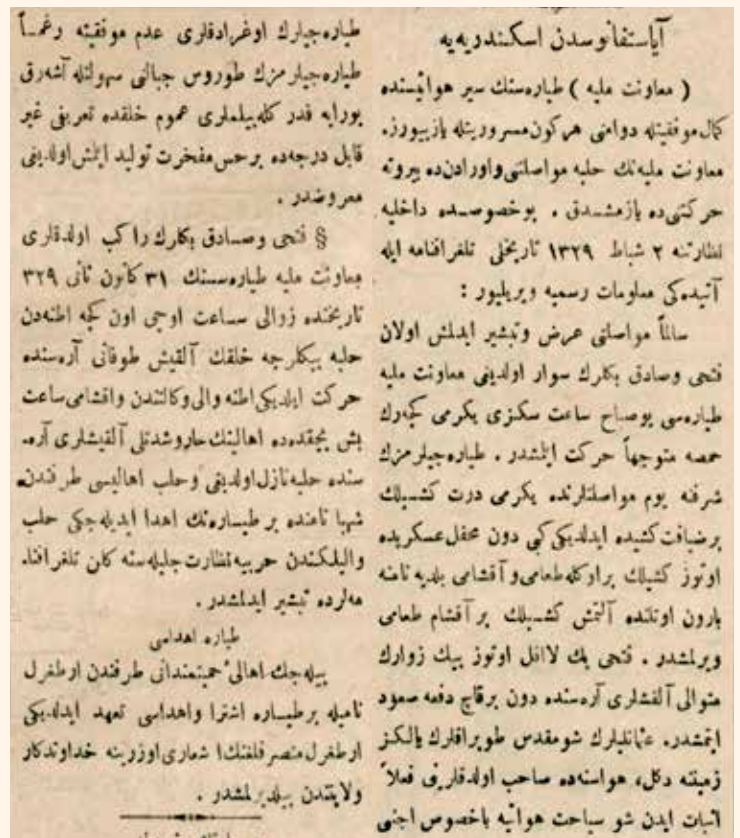 آیاستفانوسدن اسکندریه‌یه
( معاونت ملیه ) طیاره‌سنك سیر هوائیسنده
کمال موفقیتله دوامنی هرکون مسروریتله یازیيورز.
معاونت ملیه‌نك حلبه مواصلتنی واورادن‌ده بیروته
حرکتنی‌ده یازمشدق . بوخصوصده داخلیه
نظارتنه ۲ شباط ۱۳۲۹ تاریخلی تلغرافنامه ایله
آتیده‌کی معلومات رسمیه ویریلیور :
سالماً مواصلتی عرض وتبشیر ایدلمش اولان
فتحی وصادق بکلرك سوار اولدیغی معاونت ملیه
طیاره‌سی بوصباح ساعت سکزی یکرمی کچه‌رك
حمصه متوجهاً حرکت ایتمشدر . طیاره‌جیلرمزك
شرفنه یوم مواصلتلرنده یکرمی درت کشیلك
برضیافت کشیده ایدلدیکی کبی دون محفل عسکریده
اوتوز کشیلك براوکله طعامی وآقشامی بلدیه نامنه
بارون اوتلنده آلتمش کشیلك بر آقشام طعامی
ویرلمشدر . فتحی بك لااقل اوتوز بیك زوارك
متوالی آلقشلری آره‌سنده دون برقاچ دفعه صعود
ایتمشدر. عثمانلیلرك شو مقدس طوپراقلرك یالکز
زمیننه دکل، هواسنه‌ده صاحب اولدقلرینی فعلاً
اثبات ایدن شو سیاحت هوائیه باخصوص اجنبی
طیاره‌جیلرك اوغرادقلری عدم موفقیته رغماً
طیاره‌جیلرمزك طوروس جبالنی سهولتله آشه‌رق
بورایه قدر کله‌بیلملری عموم خلقده تعریفی غیر
قابل درجه‌ده بر حس مفخرت تولید ایتمش اولدیغی
معروضدر .
§ فتحی وصادق بکلرك راکب اولدقلری
معاونت ملیه طیاره‌سنك ۳۱ کانون ثانی ۳۲۹
تاریخنده زوالی ساعت اوچی اون کچه اطنه‌دن
حلبه بیکلرجه خلقك آلقیش طوفانی آره‌سنده
حرکت ایلدیکی اطنه والی وکالتندن واقشامی ساعت
بش بچقده‌ده اهالینك حار وشدتلی آلقیشلری آره‌
سنده حلبه نازل اولدیغی وحلب اهالیسی طرفندن
شهبا نامنده بر طیاره‌نك اهدا ایدیله‌جکی حلب
والیلکندن حربیه نظارت جلیله‌سنه کلن تلغرافنا‌
مه‌لرده تبشیر ایدلمشدر .
طیاره اهداسی
بیله‌جك اهالئ حمیتمندانی طرفندن ارطغرل
نامیله بر طیاره اشترا واهداسی تعهد ایدلدیکی
ارطغرل متصرفلغنك اشعاری اوزرینه خداوندکار
ولایتندن بیلدیرلمشدر .